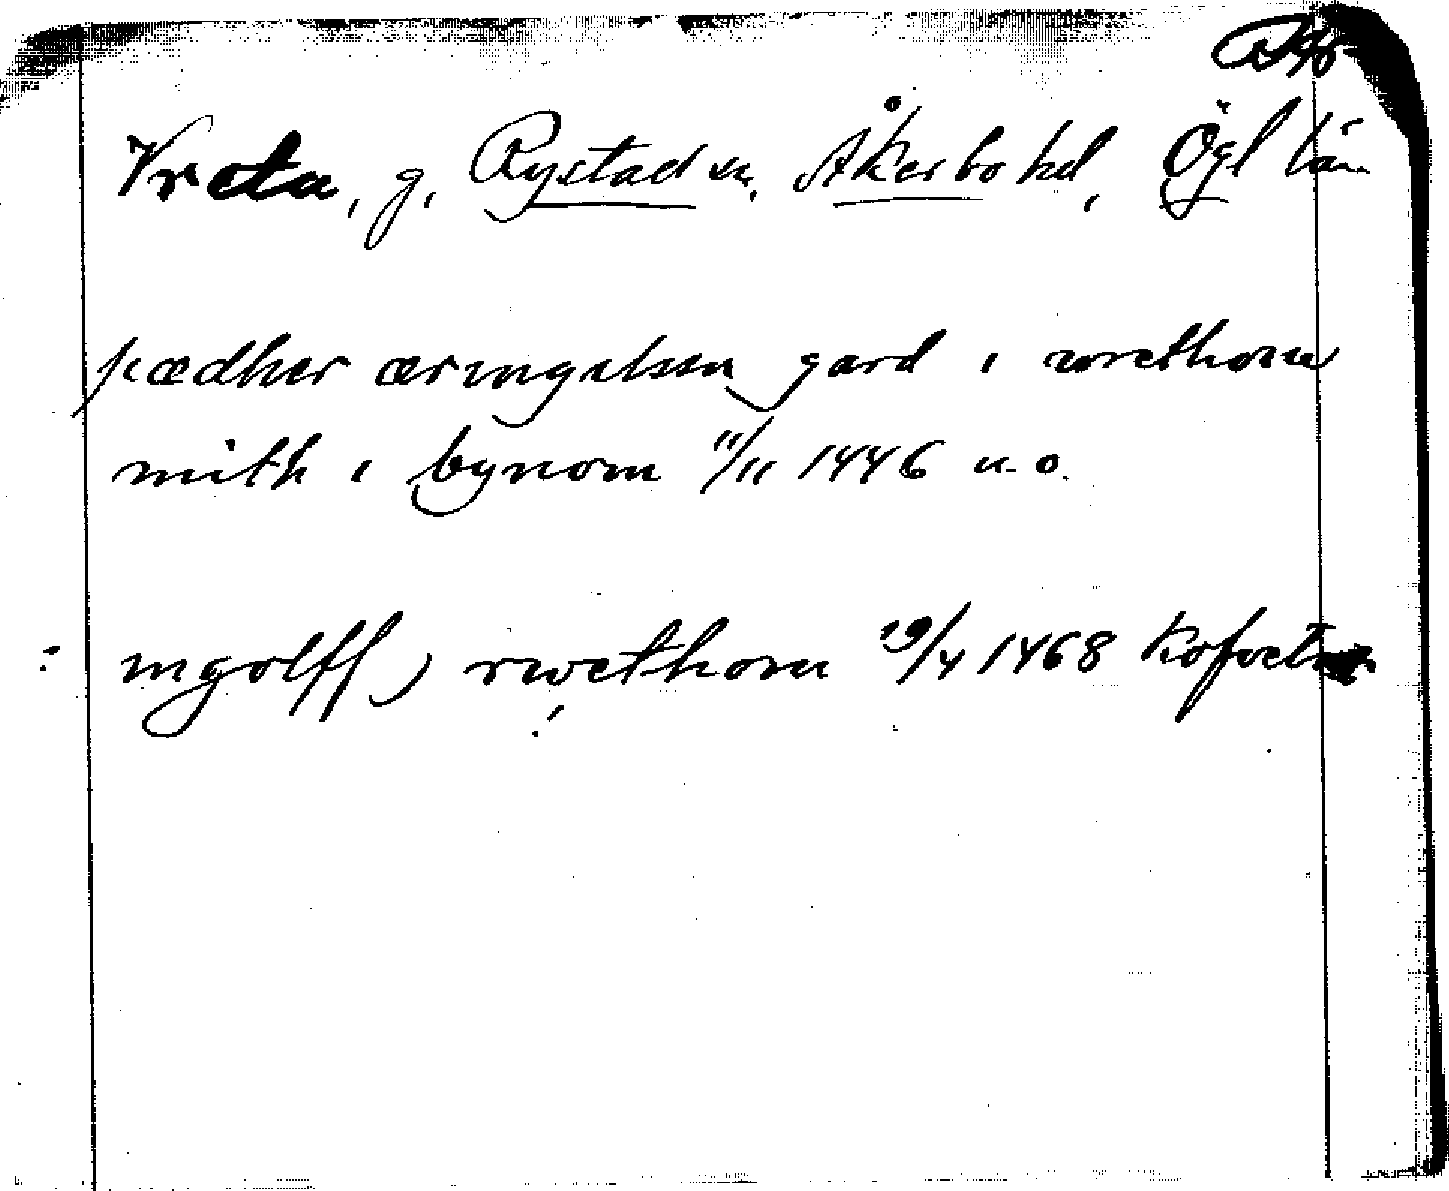 Vreta, g, Rystad sn, Åkerbo hd, Ögl län
pædher æringelssn gard i wrethom
mith i bynom 11/11 1446 u.o.
: ingolff) rwethom 19/4 1468 Kofvet
!